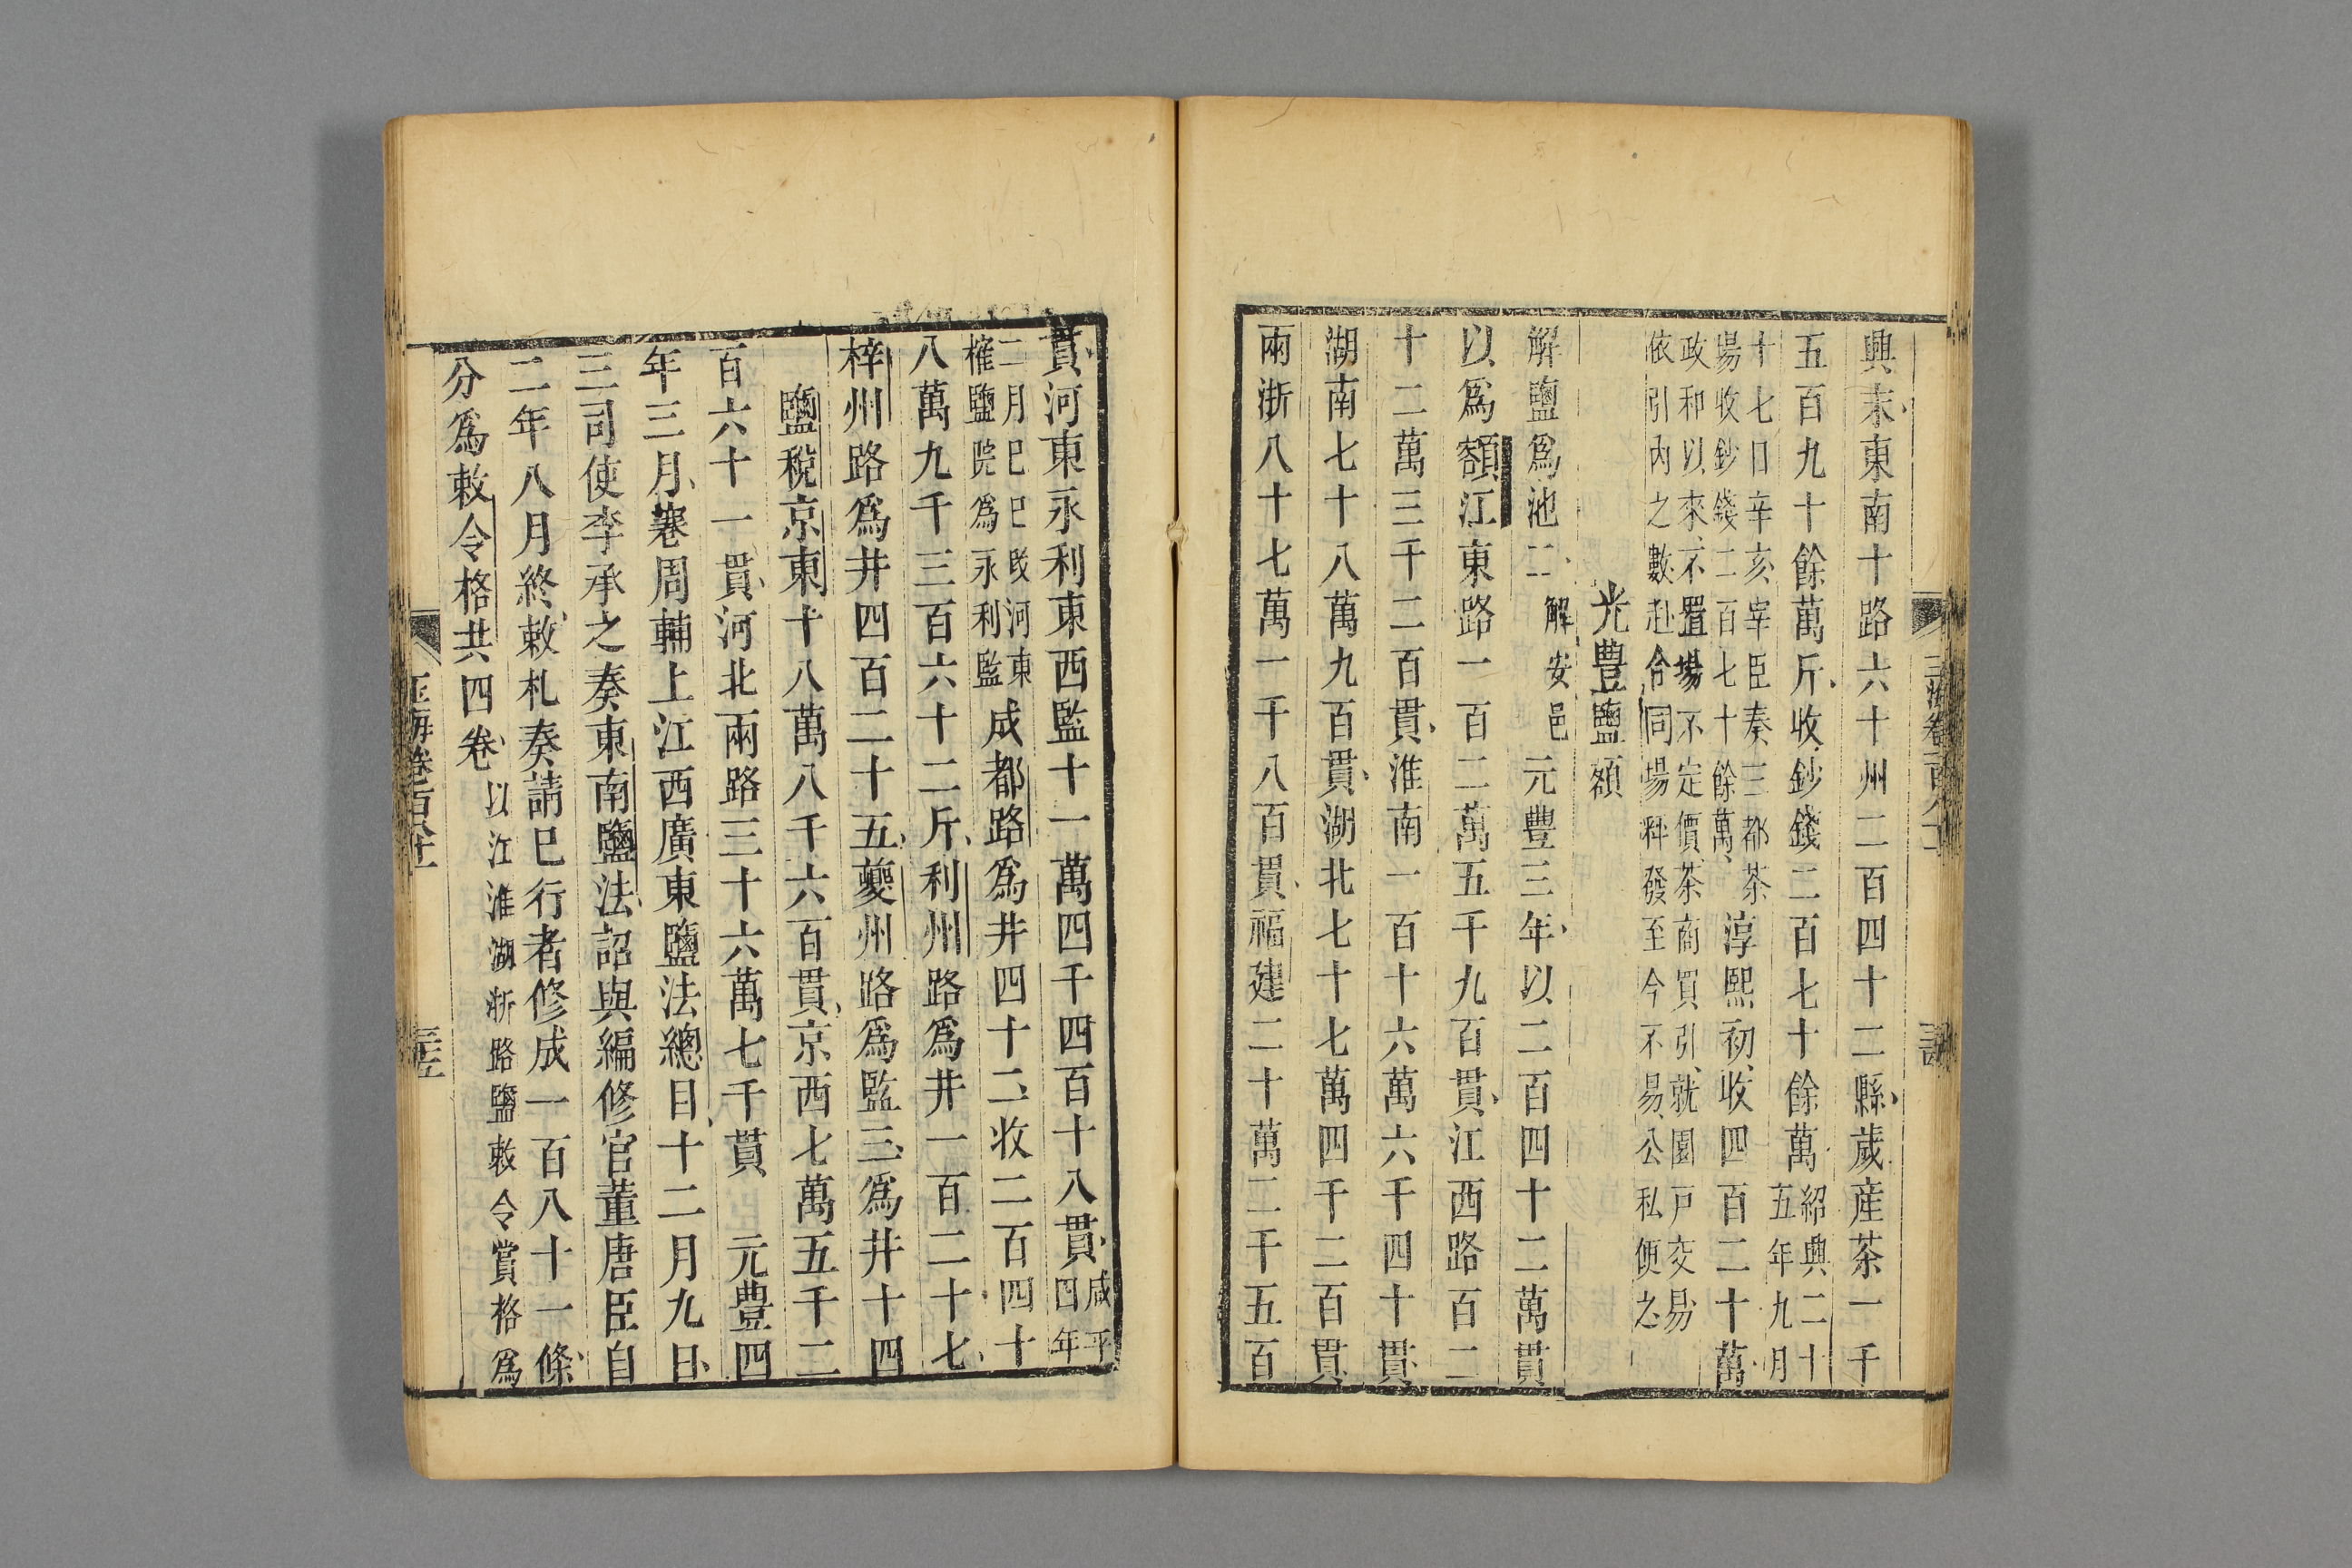 興末東南十路六十州二百四十二縣歲産茶一千
五百九十餘萬斤收鈔錢二百七十餘萬紹興二十五年九月
十七日辛亥宰臣奏三都茶場收鈔錢二百七十餘萬淳熙初收四百二十萬
政和以來不置場不定價茶商買引就園戶交易依引內之數赴合同場秤發至今不易公私便之
元豐鹽額
解鹽爲池二解安邑元豐三年以二百四十二萬貫
以爲額江東路一百二萬五千九百貫江西路百二
十二萬三千二百貫淮南一百十六萬六千四十貫
湖南七十八萬九百貫湖北七十七萬四千二百貫
兩浙八十七萬一千八百貫福建二十萬二千五百
貫河東永利東西監十一萬四千四百十八貫咸平四年
二月己巳改河東榷鹽院爲永利監成都路爲井四十二收二百四十
八萬九千三百六十二斤利州路爲井一百二十七
梓州路爲井四百二十五夔州路爲監三爲井十四
鹽稅京東十八萬八千六百貫京西七萬五千二
百六十一貫河北兩路三十六萬七千貫 元豊四
年三月蹇周輔上江西廣東鹽法總目十二月九日
三司使李承之奏東南鹽法詔與編修官董唐臣自
二年八月終敕札奏請已行者修成一百八十一條
分爲敕令格共四卷以江淮湖浙路鹽敕令賞格爲
玉海卷百八十一